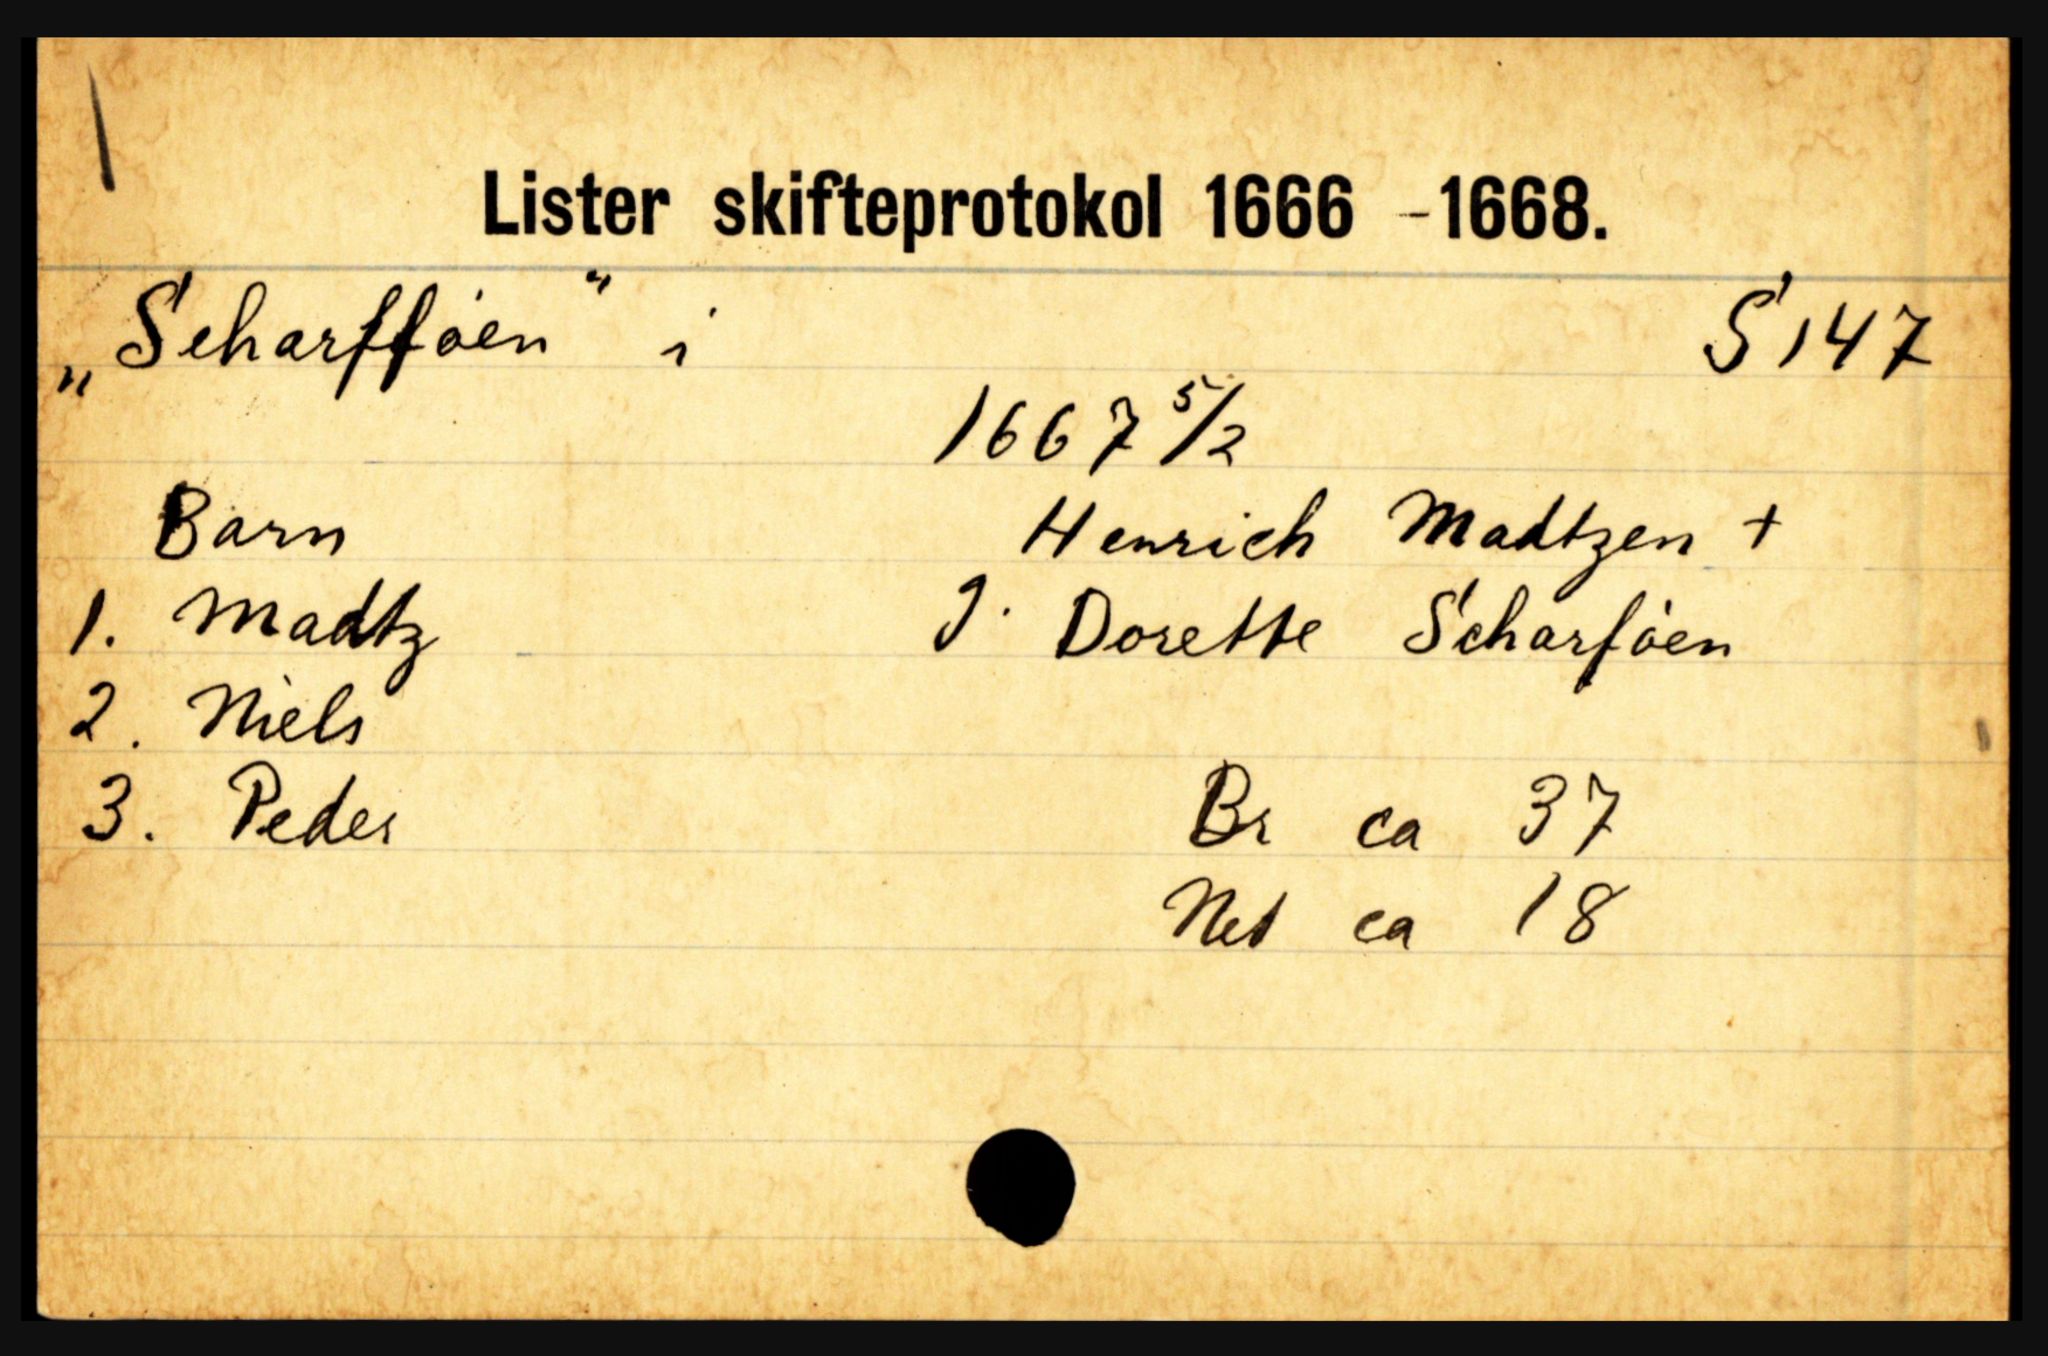 Lister skifteprotokol 1666 - 1668.
„Scharfføen" i S 147
1667 5/2
Barn Henrich Madtzen +
1. Madtz J. Dorette Scharføen
2. Niels
3. Peder Br ca 37
Net ca 18